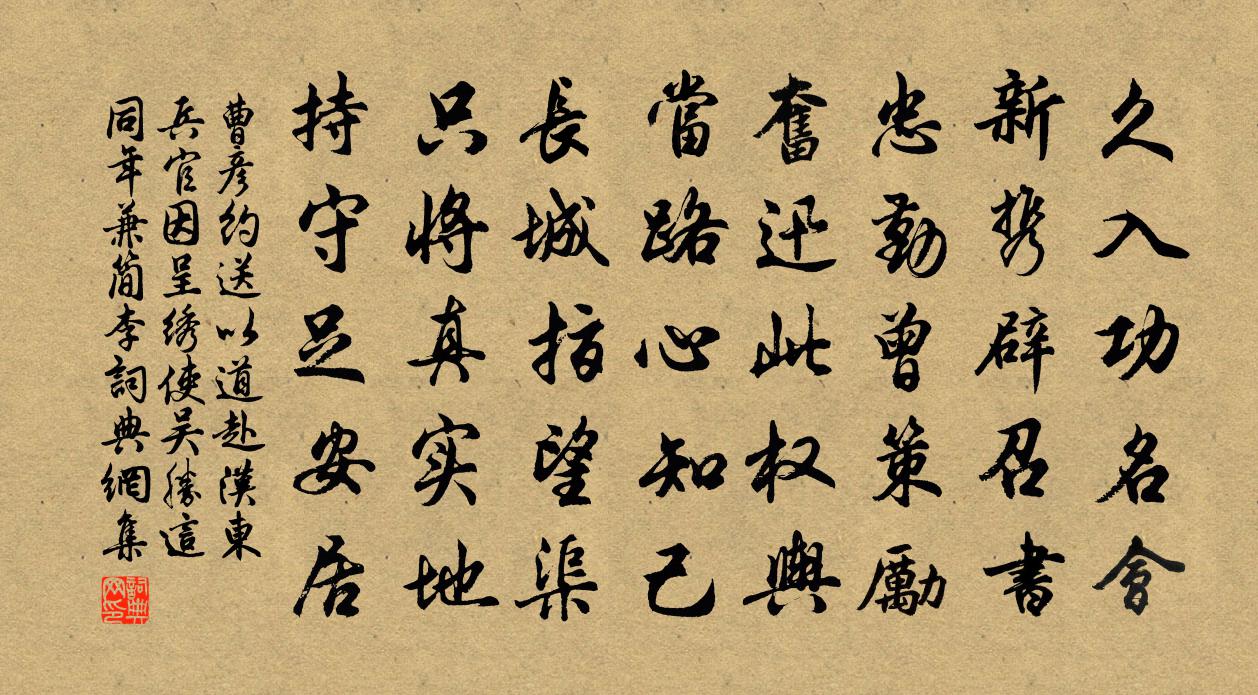 久入功名會
新携辟召書
忠勤曾策勵
奮迅此权輿
當路心知己
長城指望渠
只將真实地
持守足安居
曹彦約送以道赴漢東
兵官因呈绣使吴勝這
同年兼简李詞典網集
詞典
网印